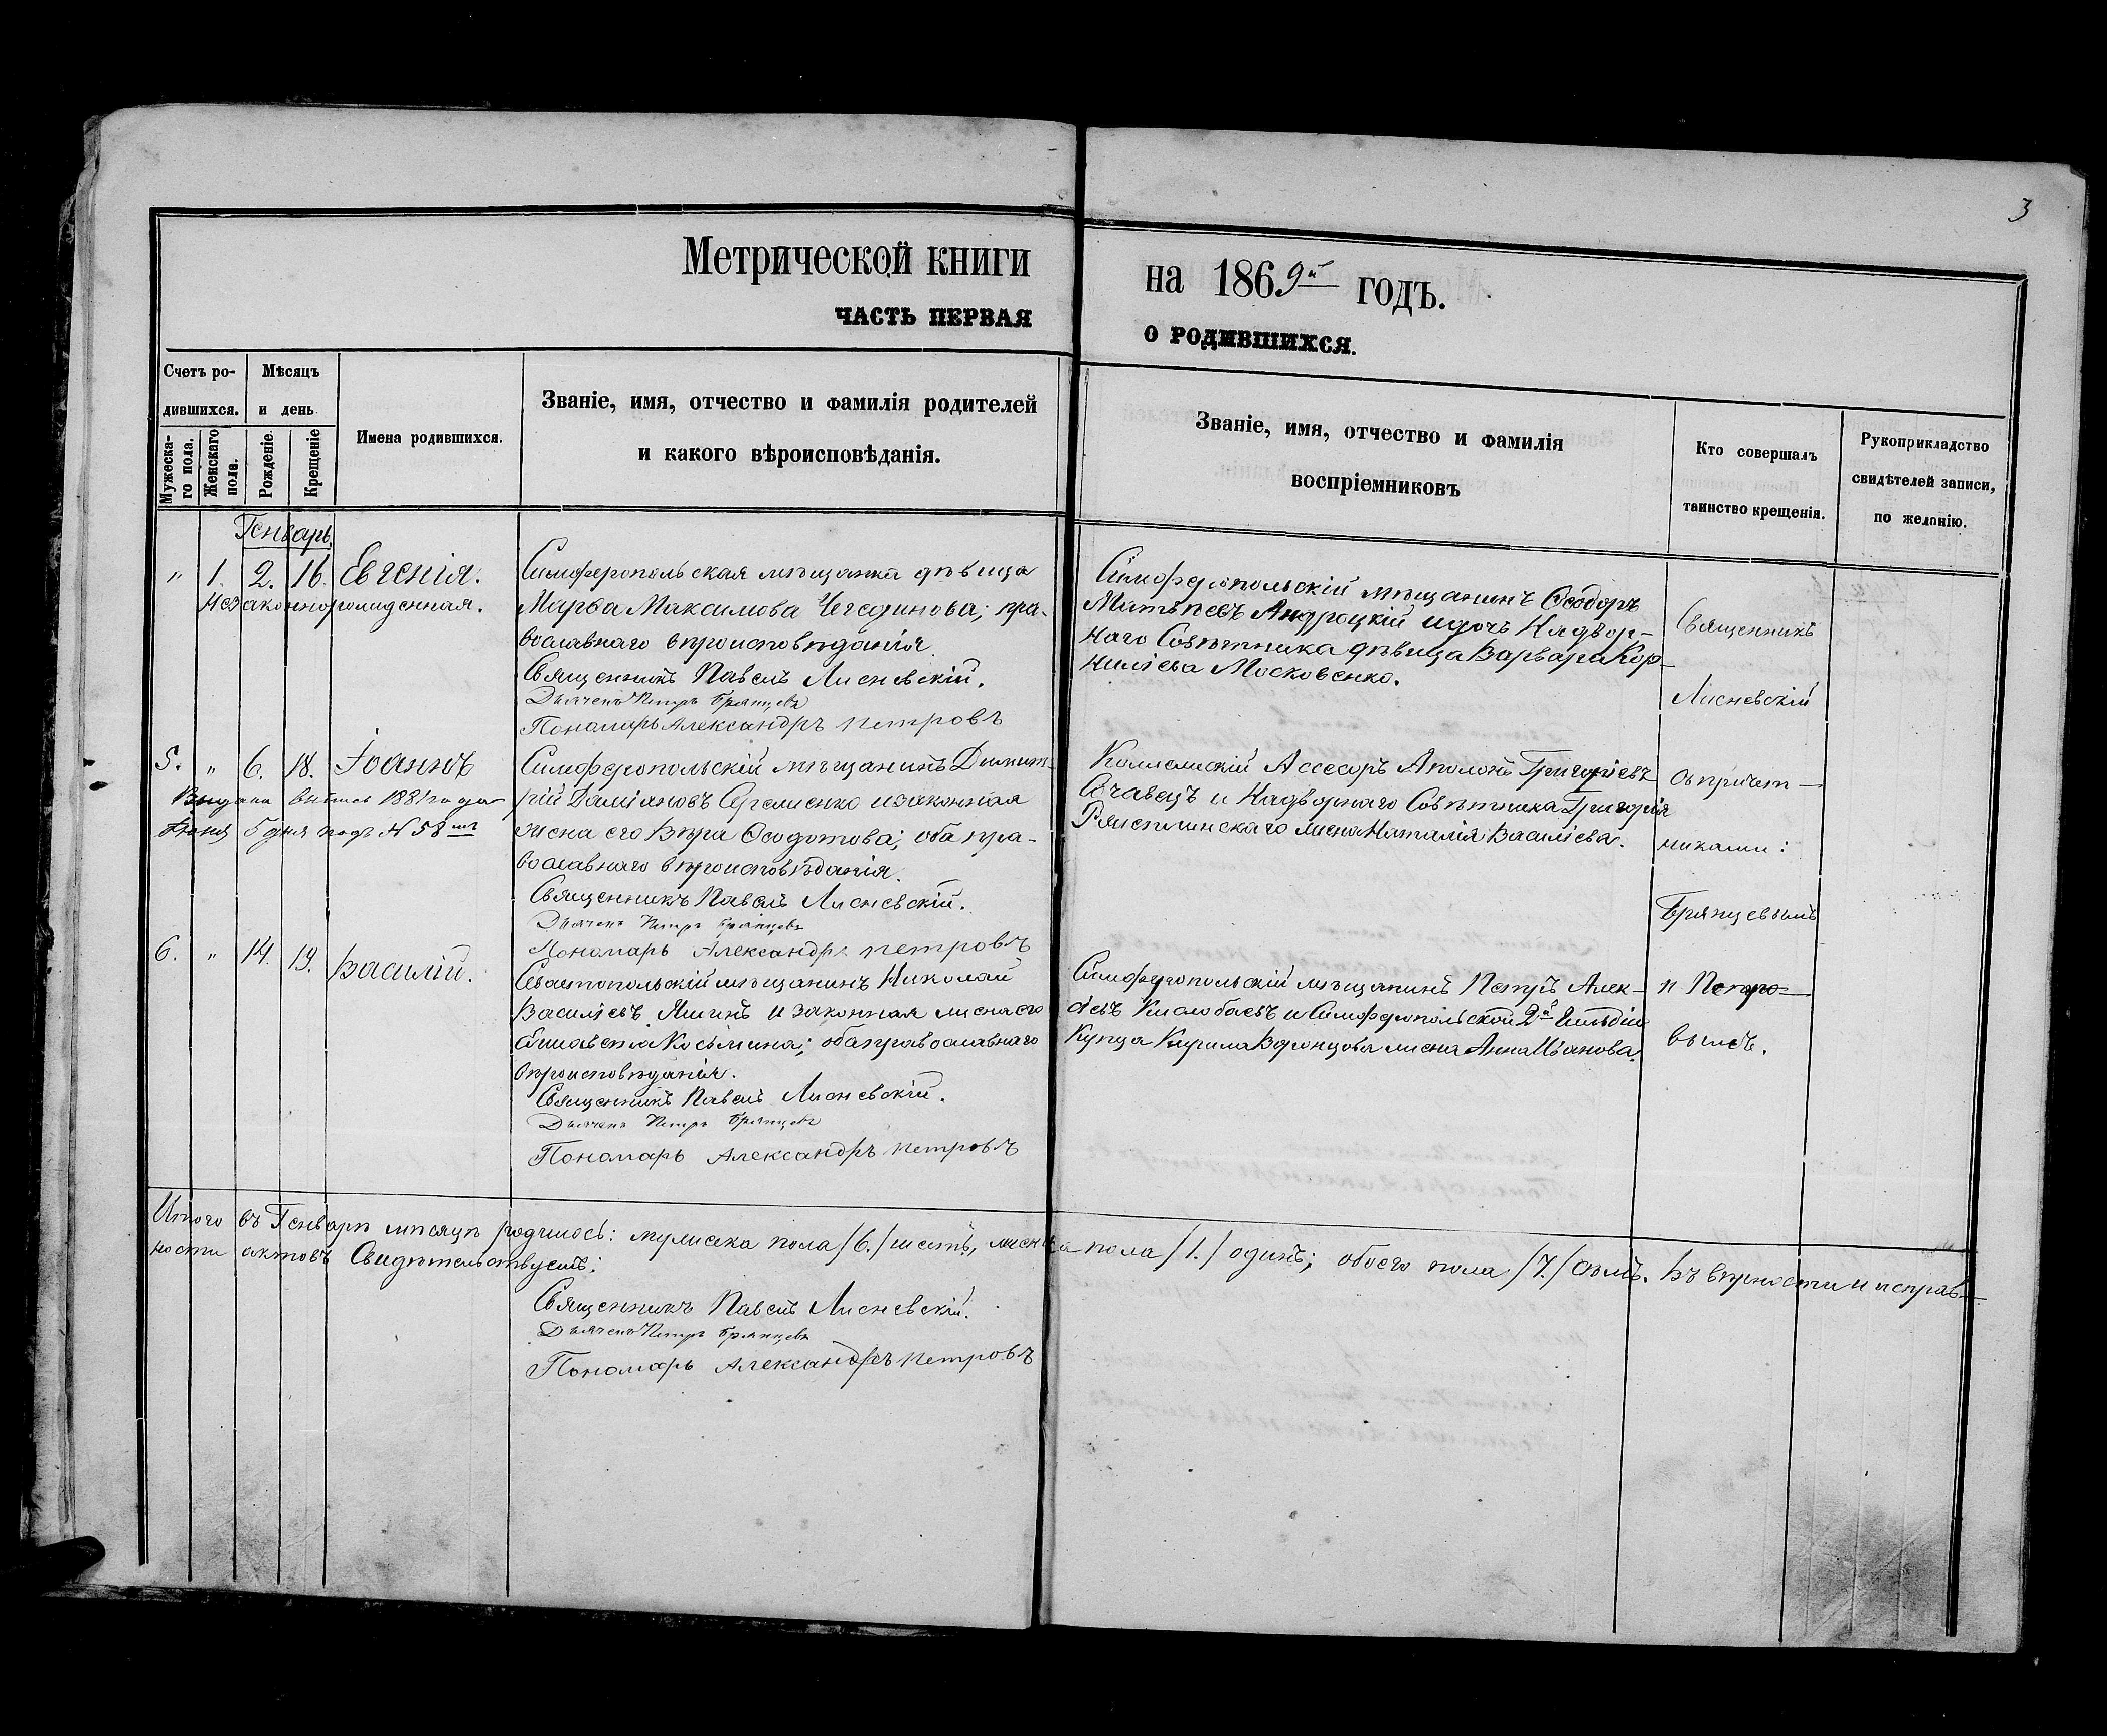 3
Метрической книги
на 1869й годъ.
ЧАСТЬ ПЕРВАЯ
О РОДИВШИХСЯ.
Счетъ ро-
дившихся.
Мѣсяцъ
и день
Мужеска-
го пола.
Женскаго
пола.
Рожденіе.
Крещеніе
Имена родившихся.
Званіе, имя, отчество и фамилія родителей
и какого вѣроисповѣданія.
Званіе, имя, отчество и фамилія
воспріемниковъ
Кто совершалъ
таинство крещенія.
Рукоприкладство
свидѣтелей записи,
по желанію.
Генварь.
" 1. 2. 16. Евгенія.
незаконнорожденная.
Симферопольская мѣщанка дѣвица
Марѳа Максимова; пра-
вославнаго вѣроисповѣданія.
Священникъ Павелъ Лисневскій.
Дьячекъ Петръ Брянцевъ
Пономарь Александръ Петровъ
Симферопольскій мѣщанинъ Ѳеодоръ
Матѳеевъ Андроцкій и дочь Надвор-
наго Совѣтника дѣвица Варвара Кор-
нилієва Московенко.
Священникъ
Лисневскій
съ причет-
никами:
Брянцевымъ
и Петро-
вымъ.
5. " 6. 18. Іоаннъ
Выдана выпись 1881 года
Іюня 5 дня подъ N 58
Симферопольскій мѣщанинъ Димит-
рій Даміановъ Сергіенко и законная
жена его Вѣра Ѳеодотова; оба пра-
вославнаго вѣроисповѣданія.
Священникъ Павелъ Лисневскій.
Дьячекъ Петръ Брянцевъ
Пономарь Александръ Петровъ
Коллежскій Ассесоръ Аполонъ Григоріевъ
и Надворнаго Совѣтника Григорія
жена Наталія Василіева.
6. " 14. 19. Василій.
Севастопольскій мѣщанинъ Николай
Василіевъ Яшинъ и законная жена его
Козьмина; оба православнаго
вѣроисповѣданія.
Священникъ Павелъ Лисневскій.
Дьячекъ Петръ Брянцевъ
Пономарь Александръ Петровъ
Симферопольскій мѣщанинъ Петръ Алек-
сѣевъ и Симферопольской 2й Гильдіи
Купца Кирила Воронцова жена Анна Иванова.
Итого въ Генварѣ мѣсяцѣ родилось: мужеска пола /6./ шесть, женска пола /1./ одинъ; обоего пола /7./ семь. Въ вѣрности и исправ-
ности актовъ Свидѣтельствуемъ:
Священникъ Павелъ Лисневскій.
Дьячекъ Петръ Брянцевъ
Пономарь Александръ Петровъ